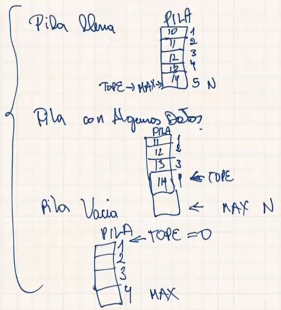 Pila llena
PILA
10 1
11 2
12 3
13 4
TOPE → MAX → 14 5 N
Pila con Algunos Datos
PILA
11 1
12 2
13 3
14 4 ← TOPE
← MAX N
Pila Vacia
PILA
1 ← TOPE = 0
2
3
4 MAX